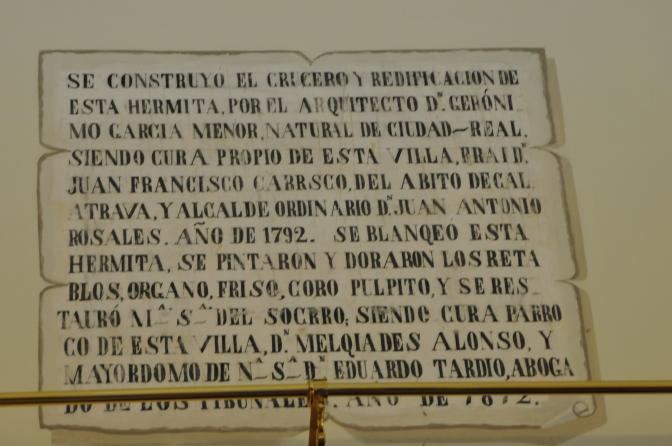 SE CONSTRUYO EL CRUCERO Y REDIFICACION DE
ESTA HERMITA, POR EL ARQUITECTO D.N GERÓNI_
MO GARCIA MENOR, NATURAL DE CIUDAD-REAL,
SIENDO CURA PROPIO DE ESTA VILLA, FRAI D.N
JUAN FRANCISCO CARRSCO, DEL ABITO DE CAL_
ATRAVA, Y ALCALDE ORDINARIO D.N JUAN ANTONIO
ROSALES. AÑO DE 1792. SE BLANQEÓ ESTA
HERMITA, SE PINTARON Y DORARON LOS RETA_
BLOS, ORGANO, FRISO, CORO PULPITO, Y SE RES_
TAURÓ N.A S.A DEL SOCRRO; SIENDO CURA PARRO
CO DE ESTA VILLA, D.N MELQIADES ALONSO, Y
MAYORDOMO DE N.A S.A D.N EDUARDO TARDIO, ABOGA
DO DE LOS TIBUNALES. AÑO DE 1872.